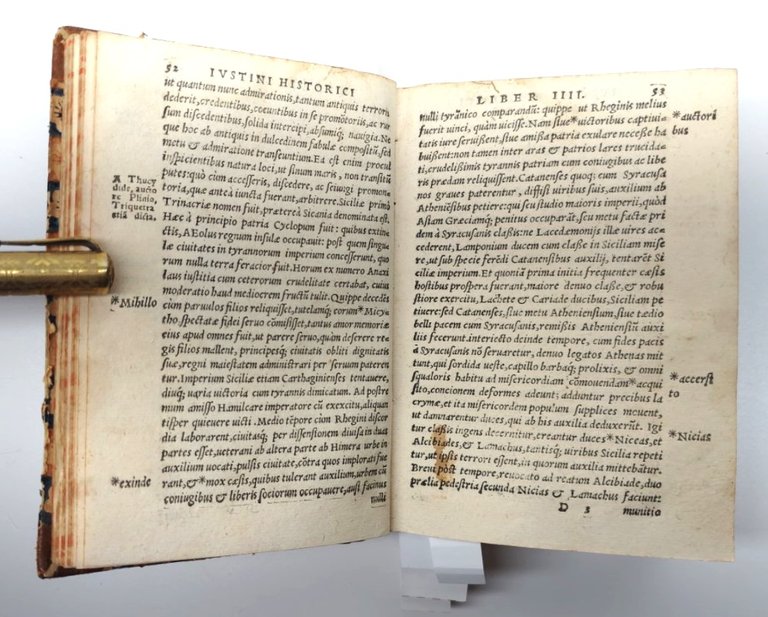 52 IVSTINI HISTORICI
ut quantum nunc admirationis, tantum antiquis terroris
dederit, credentibus, coeuntibus in se promōtorijs, ac rur
sum discedentibus, solida intercipi, absumiq́; nauigia. Ne
que hoc ab antiquis in dulcedinem fabulæ compositū, sed
metu & admiratione transeuntium. Ea est enim procul
inspicientibus natura loci, ut sinum maris, non transitū
putes: quò cùm accesseris, discedere, ac seiungi promon-
toria, quæ anteà iuncta fuerant, arbitrere. Siciliæ primò
Trinacriæ nomen fuit, præterea Sicania denominata est.
Hæc à principio patria Cyclopum fuit: quibus extin-
ctis, AEolus regnum insulæ occupauit: post quem singu-
læ ciuitates in tyrannorum imperium concesserunt, quo
rum nulla terra feracior fuit. Horum ex numero Anaxi
laus iustitia cum ceterorum crudelitate certabat, cuius
moderatiōis haud mediocrem fructū tulit. Quippe decedēs
cùm paruulos filios reliquisset, tutelamq́; eorum *Micy-
tho spectatæ fidei seruo cōmisisset, tantus amor memoriæ
eius apud omnes fuit, ut parere seruo, quàm deserere re-
gis filios mallent, principesq́; ciuitatis obliti dignitatis
suæ, regni maiestatem administrari per seruum paterent
tur. Imperium Siciliæ etiam Carthaginenses tentauere,
diuq́; uaria uictoria cum tyrannis dimicatum. Ad postre
mum amisso Hamilcare imperatore cū exercitu, aliquan
tisper quieuere uicti. Medio tēpore cùm Rhegini discor
dia laborarent, ciuitasq́; per dissensionem diuisa in duas
partes esset, ueterani ab altera parte ab Himera urbe in
auxilium uocati, pulsis ciuitate, cōtra quos implorati fue
rant, & *mox cæsis, quibus tulerant auxilium, urbem cū
coniugibus & liberis sociorum occupauere, ausi facinus
nulli
A Thucy
dide, aucto
re Plinio,
Triquetra
etiā dicta.
*Mihillo
*exinde
LIBER IIII. 53
nulli tyrānico comparandū: quippe ut Rheginis melius
fuerit uinci, quàm uicisse. Nam siue *uictoribus captiuita
tis iure seruißent, siue amißa patria exulare necesse ha
buißent: non tamen inter aras & patrios lares trucida-
ti, crudelißimis tyrannis patriam cum coniugibus ac libe
ris prædam reliquissent. Catanenses quoq; cum Syracusa
nos graues paterentur, diffisi uiribus suis, auxilium ab
Atheniēsibus petiere: qui seu studio maioris imperij, quòd
Asiam Græciamq́; penitus occuparāt, seu metu factæ pri
dem à Syracusanis claßis: ne Lacedæmonijs illæ uires ac
cederent, Lamponium ducem cum claße in Siciliam mise
re, ut sub specie ferēdi Catanensibus auxilij, tentarēt Sici
liæ imperium. Et quoniā prima initia frequenter cæsis
hostibus prospera fuerant, maiore denuo claße, & ro-
bustiore exercitu, Lachete & Cariade ducibus, Siciliam pe
tiuere: sed Catanenses, siue metu Atheniensium, siue tædio
belli pacem cum Syracusanis, remißis Atheniensiū auxi
lijs fecerunt. interiecto deinde tempore, cum fides pacis
à Syracusanis nō seruaretur, denuo legatos Athenas mit
tunt, qui sordida ueste, capillo barbaq́; prolixis, & omni
squaloris habitu ad misericordiam cōmouendam *acqui
sito, concionem deformes adeunt: adduntur precibus la
crymæ, et ita misericordem populum supplices mouent,
ut damnarentur duces, qui ab his auxilia deduxerāt. Igi
tur claßis ingens decernitur, creantur duces *Niceas, et
Alcibiades, & Lamachus, tantisq́; uiribus Sicilia repeti
tur, ut ipsis terrori eßent, in quorum auxilia mittebātur.
Breui post tempore, reuocato ad reatum Alcibiade, duo
prælia pedestria secunda Nicias & Lamachus faciunt:
D 3 munitio
*auctori
bus
*accersi
to
*Nicias